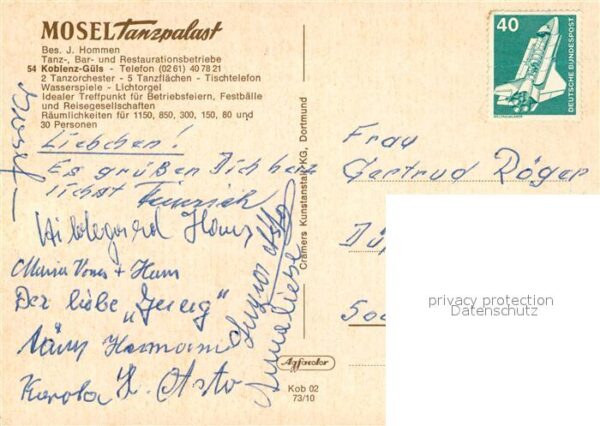 MOSEL Tanzpalast
Bes. J. Hommen
Tanz-, Bar- und Restaurationsbetriebe
54 Koblenz-Güls - Telefon (02 61) 40 78 21
2 Tanzorchester - 5 Tanzflächen - Tischtelefon
Wasserspiele - Lichtorgel
Idealer Treffpunkt für Betriebsfeiern, Festbälle
und Reisegesellschaften
Räumlichkeiten für 1150, 850, 300, 150, 80 und
30 Personen
Josef
Liebchen!
Es grüßen Dich herz
lichst Heinrich
Hildegard Hans
Maria + Hans
Der liebe
Hermann
Karola
Anneliese
Cramers Kunstanstalt KG, Dortmund
Agfacolor
Kob 02
73/10
40
DEUTSCHE BUNDESPOST
Frau
Gertrud Röger
Dü
500
privacy protection
Datenschutz